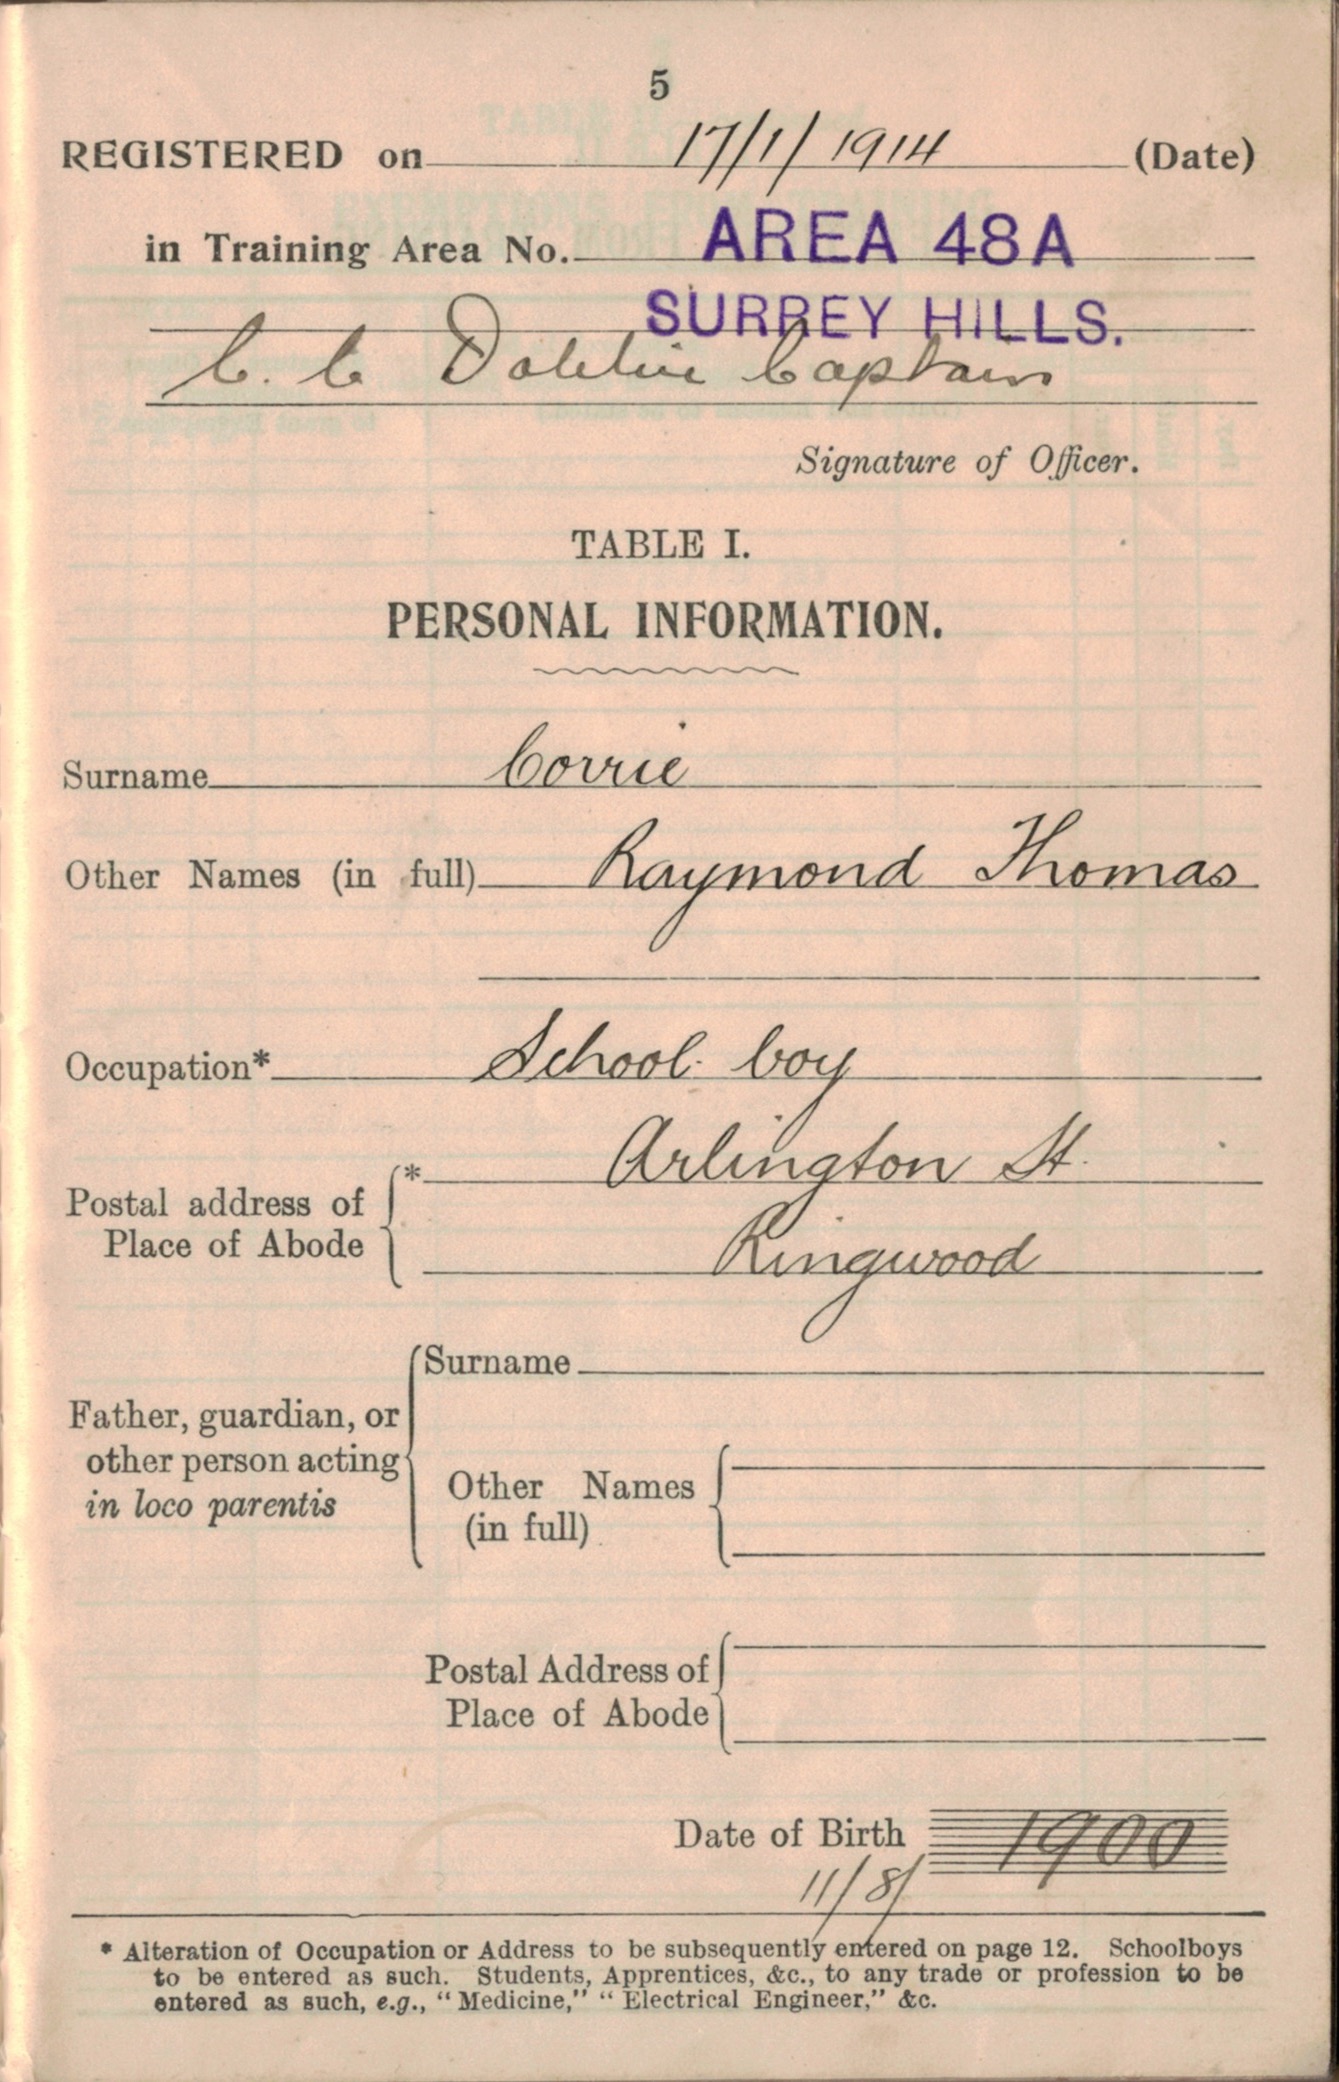 5
REGISTERED on 17/1/1914 (Date)
in Training Area No. AREA 48A
SURREY HILLS.
C. C Captain
Signature of Officer.
TABLE I.
PERSONAL INFORMATION.
Surname Corrie
Other Names (in full) Raymond Thomas
Occupation* School boy
Postal address of Place of Abode * Arlington St.
Ringwood
Father, guardian, or other person acting in loco parentis
Surname
Other Names (in full)
Postal Address of Place of Abode
Date of Birth 11/8/1900
* Alteration of Occupation or Address to be subsequently entered on page 12. Schoolboys
to be entered as such. Students, Apprentices, &c., to any trade or profession to be
entered as such, e.g., "Medicine," "Electrical Engineer," &c.